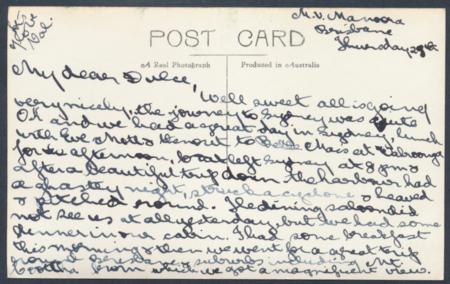 M.V. Manoora
Brisbane
Thursday
POST CARD
A Real Photograph
Produced in Australia
My dear Dulce,
Well sweet all is going
very nicely, the journey to Sydney was quite
OK and we had a great day in Sydney, lunch
with Eve & then out to Chas at
for the afternoon, boat left Sydney at 8 pm &
after a beautiful trip down the harbour had
a ghastly night, struck a cyclone & heaved
& pitched around. The dining saloon did
not see us at all yesterday, but we had some
dinner in our cabin. I had some breakfast
this morning & then we went for a great trip
round Brisbane & suburbs including Mt
Coottha from which we got a magnificent view.